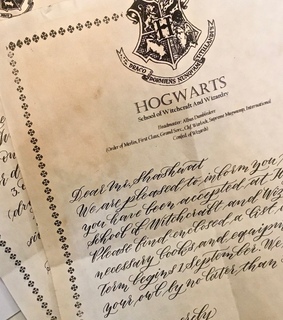 DRACO DORMIENS NUNQUAM TITILLANDUS
H
HOGWARTS
School of Witchcraft And Wizardry
Headmaster: Albus Dumbledore
(Order of Merlin, First Class, Grand Sorc., Chf. Warlock, Supreme Mugwump, International
Confed. of Wizards)
Dear Mr. Shashwat
We are pleased to inform you
you have been accepted at H
School of Witchcraft and Wiz
Please find enclosed a list
necessary books and equipm
Term begins 1 September. We
your owl by no later than